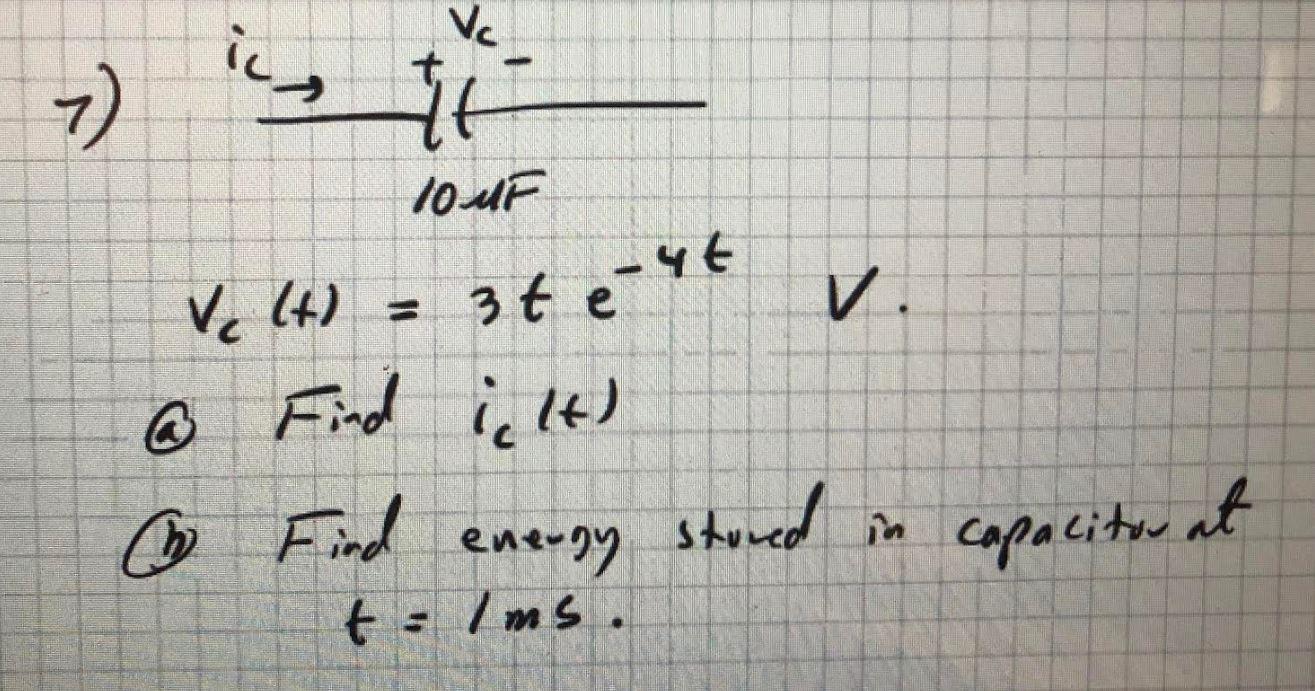 7)
ic →
Vc
+ -
10 μF
Vc (t) = 3 t e^-4t V.
ⓐ Find ic (t)
ⓑ Find energy stored in capacitor at
t = 1 ms.